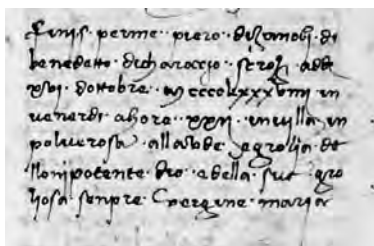 finis · per me · piero · di zanobj · di
benedetto · di charoccio · strozj · adi
xvj · dottobre · mcccclxxxviiij in
venerdi · ahore · xxij · in villa in
poluerosa · allalode · e grolia · de
llonipotente · dio · e della · sue gro
liosa senpre Vergine · maria